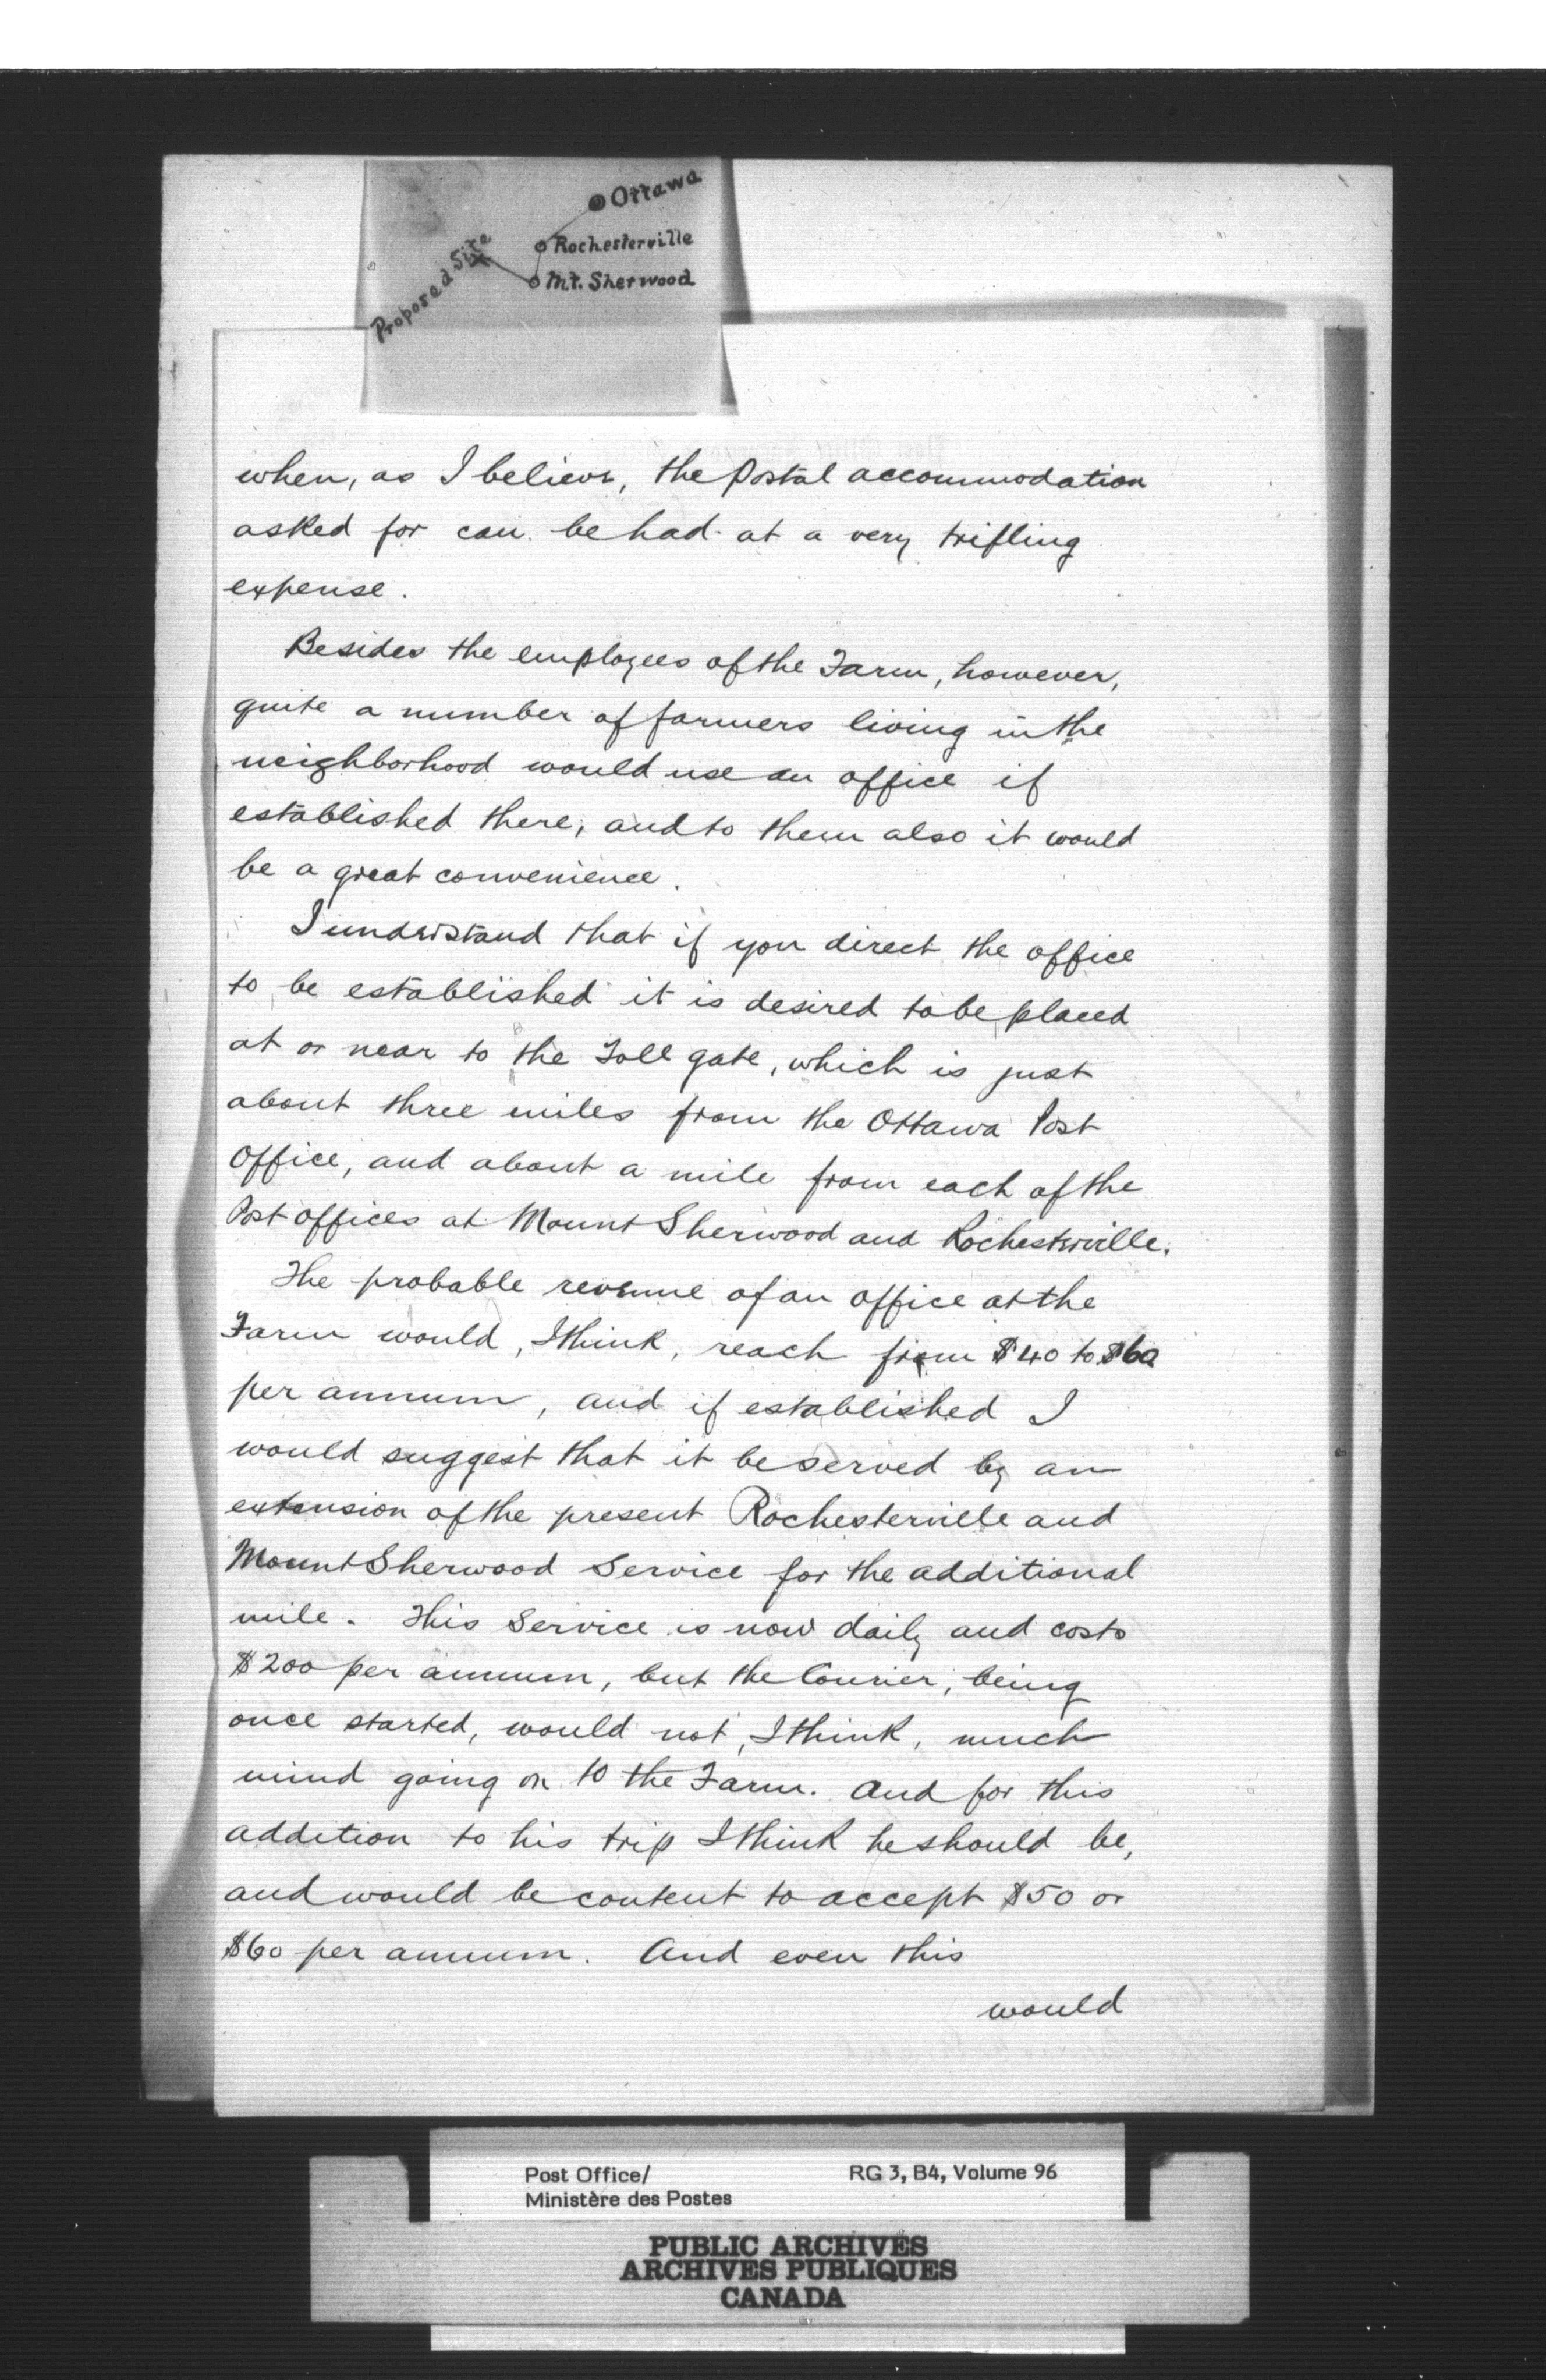 Ottawa
Rochesterville
Mt. Sherwood
Proposed Site
when, as I believe, the Postal accommodation
asked for can be had at a very trifling
expense.
Besides the employees of the Farm, however,
quite a number of farmers living in the
neighborhood would use an office if
established there, and to them also it would
be a great convenience.
I understand that if you direct the office
to be established it is desired to be placed
at or near to the Toll gate, which is just
about three miles from the Ottawa Post
Office, and about a mile from each of the
Post offices at Mount Sherwood and Rochesterville.
The probable revenue of an office at the
Farm would, I think, reach from $40 to $60
per annum, and if established I
would suggest that it be served by an
extension of the present Rochesterville and
Mount Sherwood Service for the additional
mile. This Service is now daily and costs
$200 per annum, but the Courier, being
once started, would not, I think, much
mind going on to the Farm. And for this
addition to his trip I think he should be,
and would be content to accept $50 or
$60 per annum. And even this
would
Post Office/ RG 3, B4, Volume 96
Ministère des Postes
PUBLIC ARCHIVES
ARCHIVES PUBLIQUES
CANADA